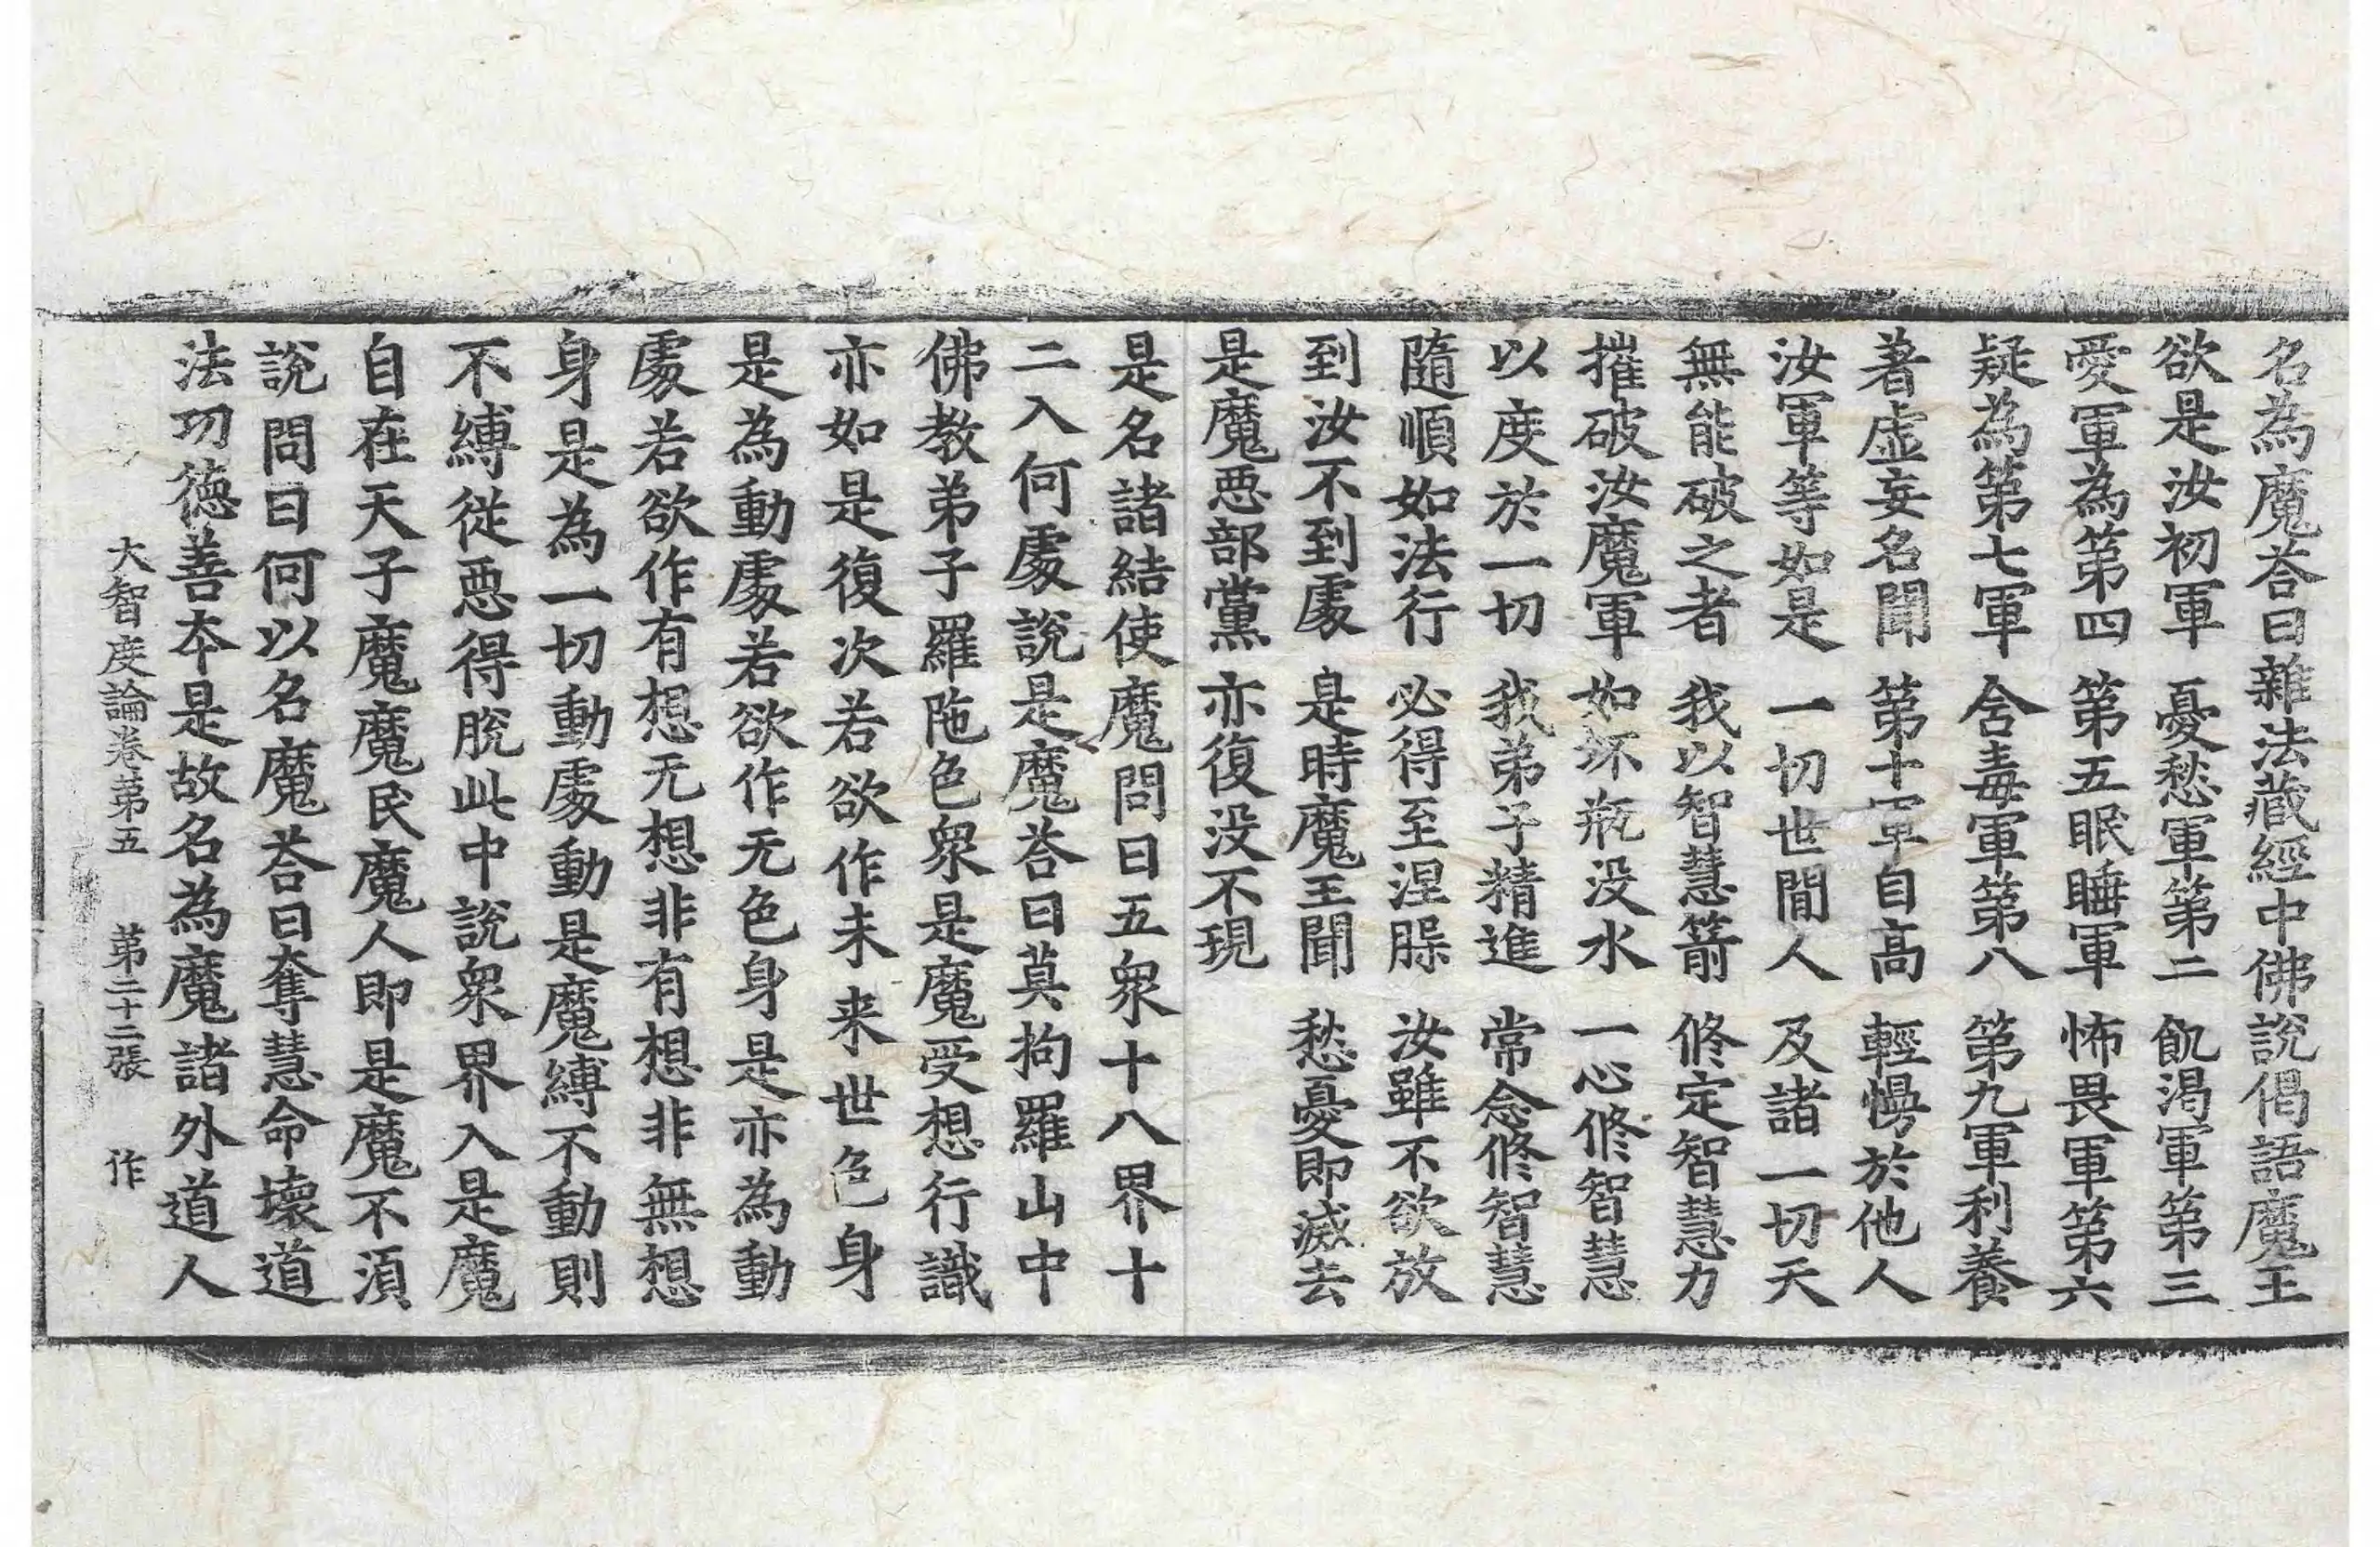 名為魔荅曰雜法藏經中佛說偈語魔王
欲是汝初軍 憂愁軍第二 飢渴軍第三
愛軍為第四 第五眠睡軍 怖畏軍第六
疑為第七軍 含毒軍第八 第九軍利養
著虛妄名聞 第十軍自高 輕慢於他人
汝軍等如是 一切世間人 及諸一切天
無能破之者 我以智慧箭 修定智慧力
摧破汝魔軍 如坏瓶没水 一心修智慧
以度於一切 我弟子精進 常念修智慧
隨順如法行 必得至涅槃 汝雖不欲放
到汝不到處 是時魔王聞 愁憂即滅去
是魔惡部黨 亦復没不現
是名諸結使魔問曰五衆十八界十
二入何處說是魔荅曰莫拘羅山中
佛教弟子羅陁色衆是魔受想行識
亦如是復次若欲作未来世色身
是為動處若欲作无色身是亦為動
處若欲作有想无想非有想非無想
身是為一切動處動是魔縛不動則
不縛從惡得脫此中說衆界入是魔
自在天子魔魔民魔人即是魔不須
說問曰何以名魔荅曰奪慧命壞道
法功德善本是故名為魔諸外道人
大智度論卷第五 第二十二張 作